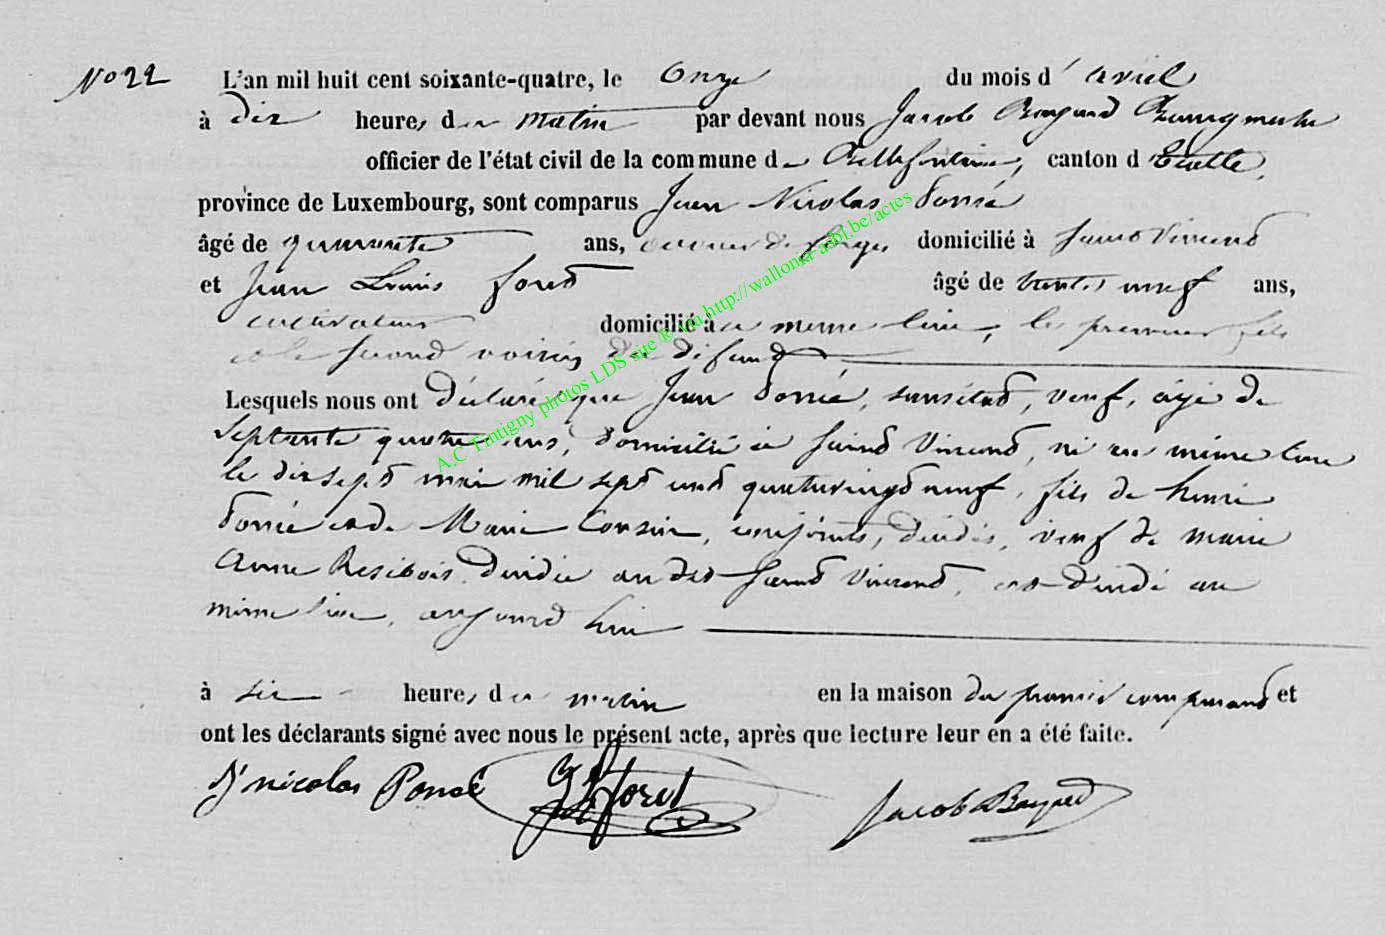 No 22 L'an mil huit cent soixante-quatre, le Onze du mois d'avril
à dix heures du matin par devant nous Jacob Bourgmestre
officier de l'état civil de la commune de Bellefontaine, canton d'Etalle,
province de Luxembourg, sont comparus Jean Nicolas Poncé
âgé de quarante ans, ouvrier de forges domicilié à Saint Vincent
et Jean Louis foret âgé de trente neuf ans,
cultivateur domicilié au meme lieu, le premier fils
et le second voisin du défunt
Lesquels nous ont déclaré que Jean Poncé, sans état, veuf, âgé de
Septante quatre ans, domicilié à Saint Vincent, né au même lieu
le dix sept mai mil sept cent quatrevingt neuf, fils de henri
Poncé et de Marie, conjoints, décédés, veuf de marie
Anne Resibois décédée au dit Saint Vincent, est décédé au
même lieu, aujourd'hui
à six heures du matin en la maison du premier comparant et
ont les déclarants signé avec nous le présent acte, après que lecture leur en a été faite.
Jn nicolas Poncé JL foret Jacob
A.C Tintigny photos LDS site ® via http://wallonia-asbl.be/actes